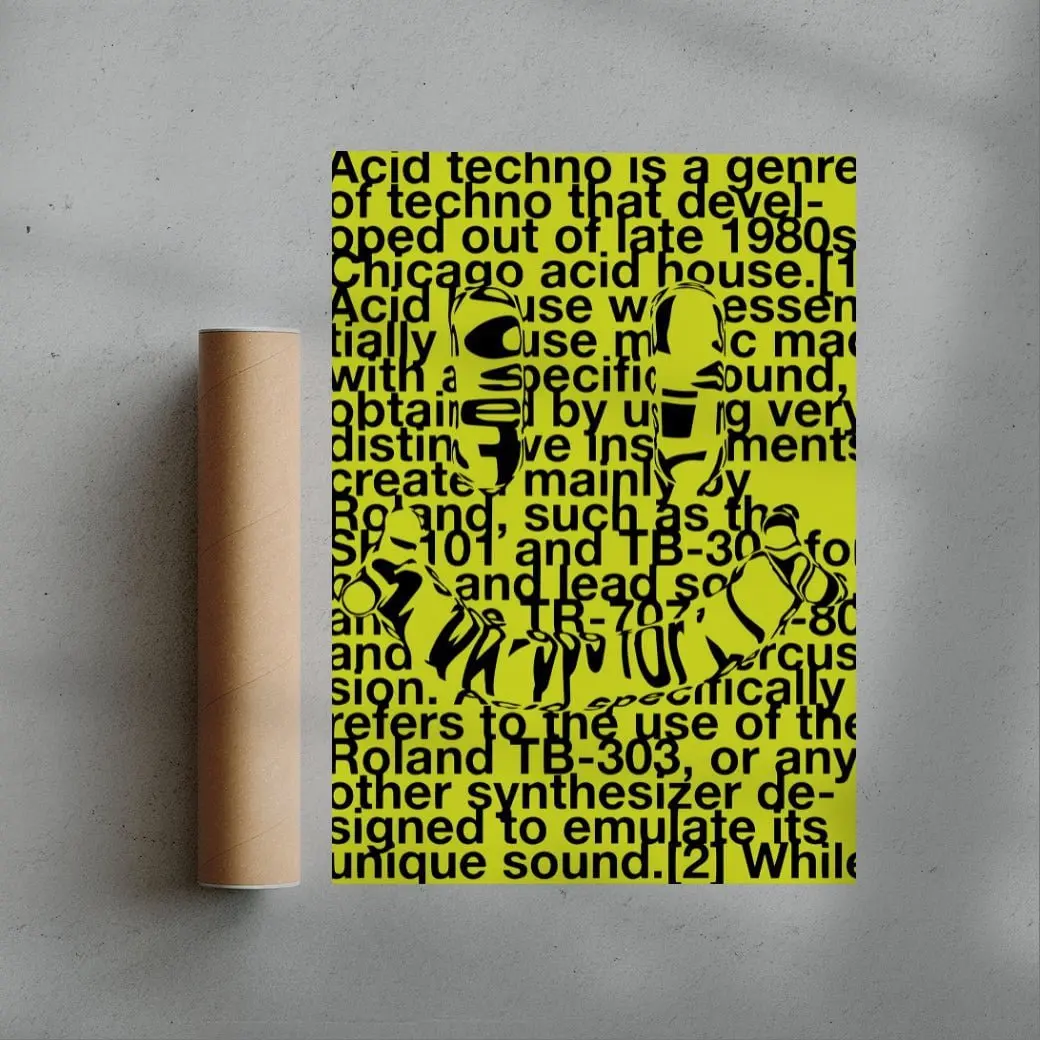 Acid techno is a genre
of techno that devel-
oped out of late 1980s
Chicago acid house.[1
Acid essen
tially mac
with a specific sound,
obtained by using very
distinctive instruments
created mainly by
Roland, such as the
SH-101 and TB-303 for
and lead
TR-707 -80
and
sion. Acid specifically
refers to the use of the
Roland TB-303, or any
other synthesizer de-
signed to emulate its
unique sound.[2] While